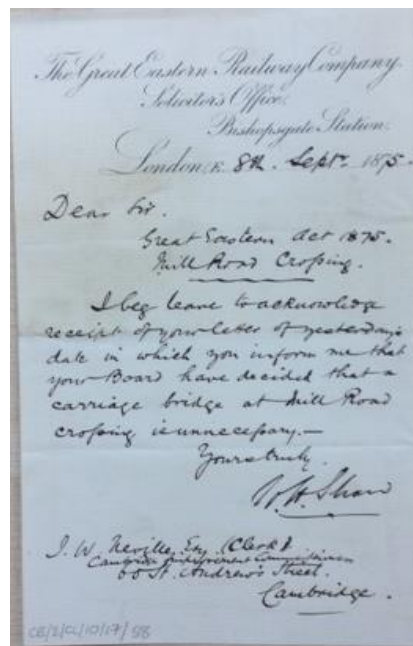 The Great Eastern Railway Company.
Solicitor's Office,
Bishopsgate Station.
London, E. 8th. Septr. 1875-
Dear Sir.
Great Eastern Act 1875.
Mill Road Crossing.
I beg leave to acknowledge
receipt of your letter of yesterday's
date in which you inform me that
your Board have decided that a
carriage bridge at Mill Road
crossing is unnecessary.—
Yours truly.
W. H. Shaw
J. W. Neville, Esq (Clerk)
Cambridge Improvement Commissioners
60 St. Andrew's Street.
Cambridge.
CB/2/CL/10/17/58